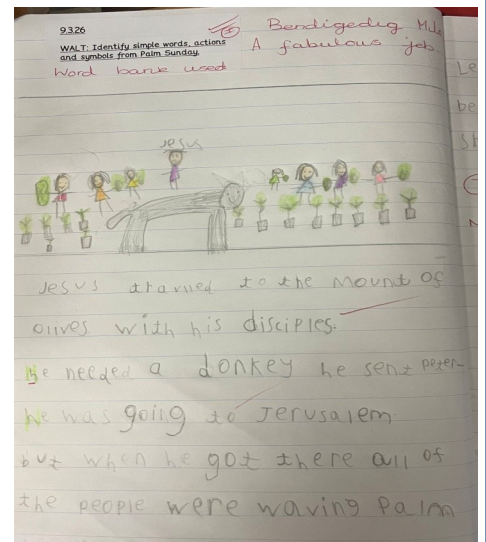 9.3.26
WALT: Identify simple words, actions
and symbols from Palm Sunday.
Bendigedig
A fabulous job
Word bank used
Jesus
Jesus travled to the Mount of
olives with his disciples.
he needed a donkey he sent peter
he was going to Jerusalem
but when he got there all of
the people were waving Palm
Le
be